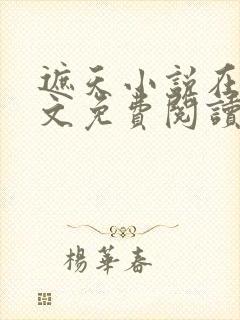 遮天小説在
文免費閱讀
楊華春